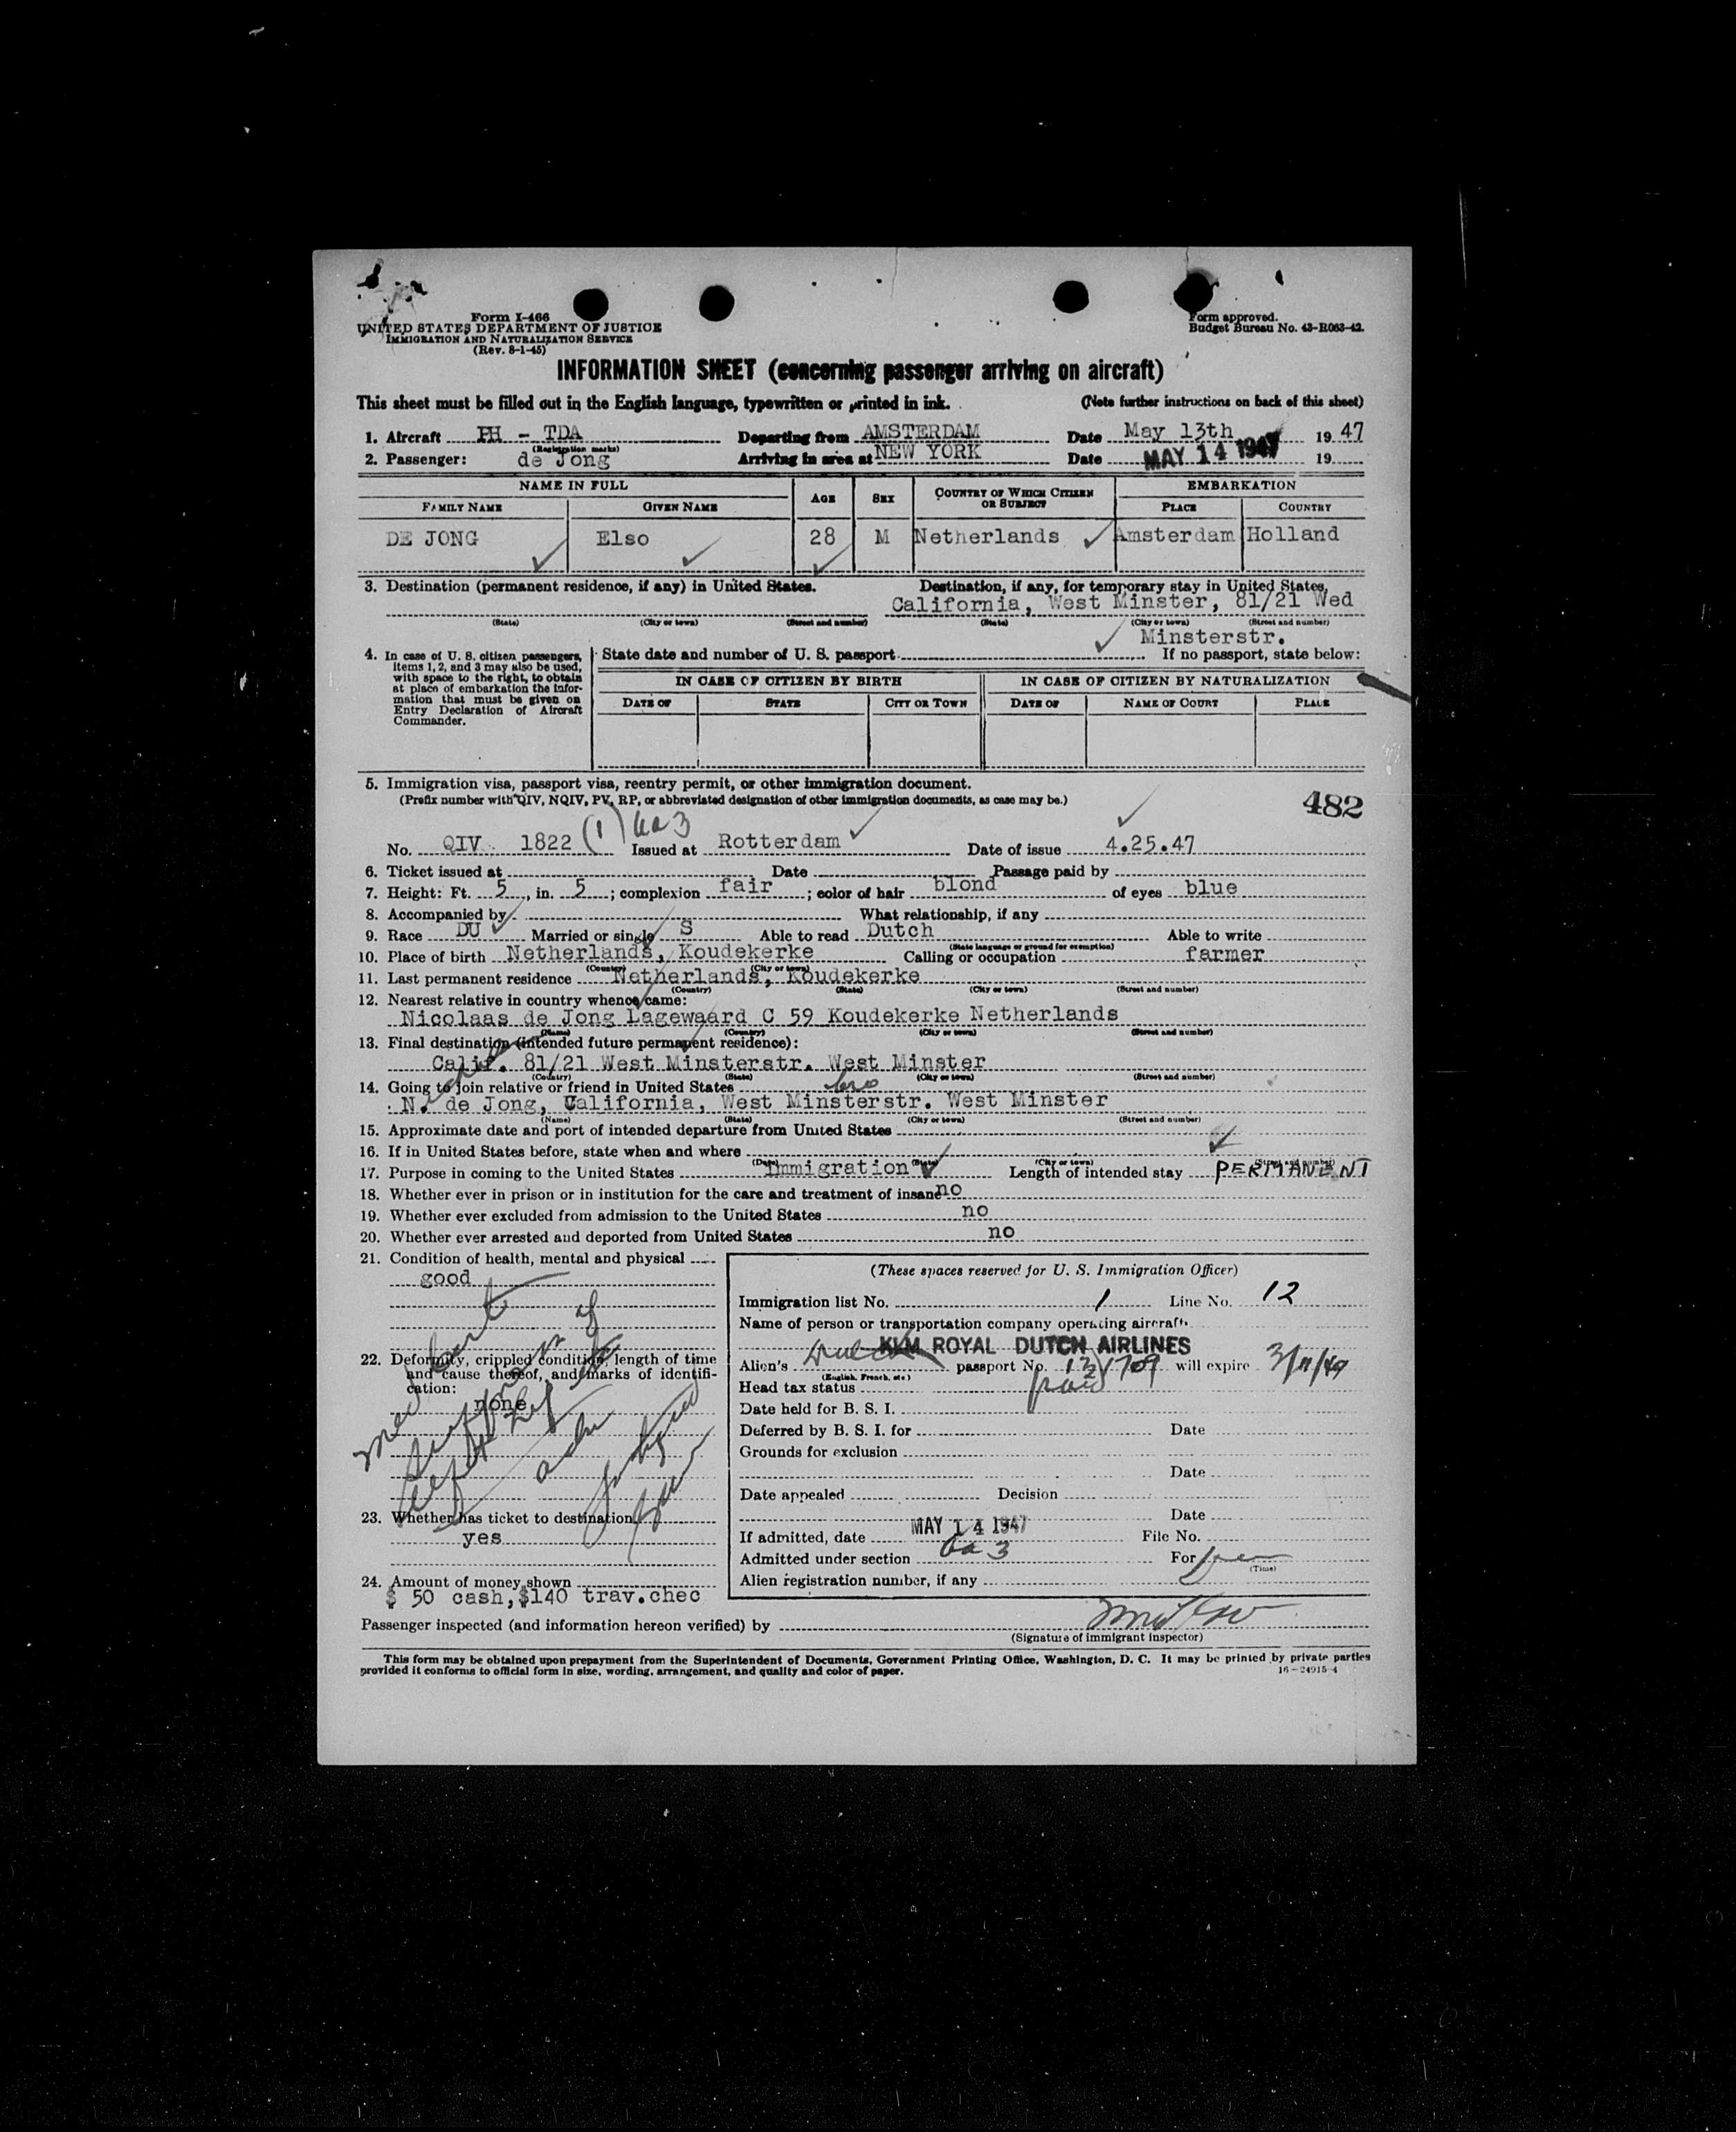 Form I-466
UNITED STATES DEPARTMENT OF JUSTICE
IMMIGRATION AND NATURALIZATION SERVICE
(Rev. 8-1-45)
Form approved.
Budget Bureau No. 43-R063-42.
INFORMATION SHEET (concerning passenger arriving on aircraft)
This sheet must be filled out in the English language, typewritten or printed in ink. (Note further instructions on back of this sheet)
1. Aircraft PH - TDA Departing from AMSTERDAM Date May 13th 1947
(Registration marks)
2. Passenger: de Jong Arriving in area at NEW YORK Date MAY 14 1947 19
NAME IN FULL AGE SEX COUNTRY OF WHICH CITIZEN OR SUBJECT EMBARKATION
FAMILY NAME GIVEN NAME PLACE COUNTRY
DE JONG Elso 28 M Netherlands Amsterdam Holland
3. Destination (permanent residence, if any) in United States. Destination, if any, for temporary stay in United States,
California, West Minster, 81/21 Wed
(State) (City or town) (Street and number) (State) (City or town) (Street and number)
Minsterstr.
4. In case of U. S. citizen passengers, items 1, 2, and 3 may also be used, with space to the right, to obtain at place of embarkation the information that must be given on Entry Declaration of Aircraft Commander.
State date and number of U. S. passport If no passport, state below:
IN CASE OF CITIZEN BY BIRTH IN CASE OF CITIZEN BY NATURALIZATION
DATE OF STATE CITY OR TOWN DATE OF NAME OF COURT PLACE
5. Immigration visa, passport visa, reentry permit, or other immigration document.
(Prefix number with QIV, NQIV, PV, RP, or abbreviated designation of other immigration documents, as case may be.)
482
No. QIV 1822 (1) 6a3 Issued at Rotterdam Date of issue 4.25.47
6. Ticket issued at Date Passage paid by
7. Height: Ft. 5, in. 5; complexion fair; color of hair blond of eyes blue
8. Accompanied by What relationship, if any
9. Race DU Married or single S Able to read Dutch Able to write
(State language or ground for exemption)
10. Place of birth Netherlands, Koudekerke Calling or occupation farmer
(Country) (City or town)
11. Last permanent residence Netherlands, Koudekerke
(Country) (State) (City or town) (Street and number)
12. Nearest relative in country whence came:
Nicolaas de Jong Lagewaard C 59 Koudekerke Netherlands
(Name) (Country) (City or town) (Street and number)
13. Final destination (intended future permanent residence):
Calif. 81/21 West Minsterstr. West Minster
(Country) (State) (City or town) (Street and number)
14. Going to join relative or friend in United States bro
N. de Jong, California, West Minsterstr. West Minster
(Name) (State) (City or town) (Street and number)
15. Approximate date and port of intended departure from United States
16. If in United States before, state when and where
(Date) (State) (City or town) (Street and number)
17. Purpose in coming to the United States Immigration Length of intended stay PERMANENT
18. Whether ever in prison or in institution for the care and treatment of insane no
19. Whether ever excluded from admission to the United States no
20. Whether ever arrested and deported from United States no
21. Condition of health, mental and physical
good
22. Deformity, crippled condition, length of time and cause thereof, and marks of identification:
none
23. Whether has ticket to destination
yes
24. Amount of money shown
$ 50 cash, $140 trav.chec
(These spaces reserved for U. S. Immigration Officer)
Immigration list No. 1 Line No. 12
Name of person or transportation company operating aircraft
KLM ROYAL DUTCH AIRLINES
Alien's Dutch passport No. will expire
(English, French, etc.)
Head tax status paid
Date held for B. S. I.
Deferred by B. S. I. for Date
Grounds for exclusion
Date
Date appealed Decision
Date
If admitted, date MAY 14 1947 File No.
Admitted under section 6a 3 For
(Time)
Alien registration number, if any
Passenger inspected (and information hereon verified) by
(Signature of immigrant inspector)
This form may be obtained upon prepayment from the Superintendent of Documents, Government Printing Office, Washington, D. C. It may be printed by private parties
provided it conforms to official form in size, wording, arrangement, and quality and color of paper. 16-24915-4